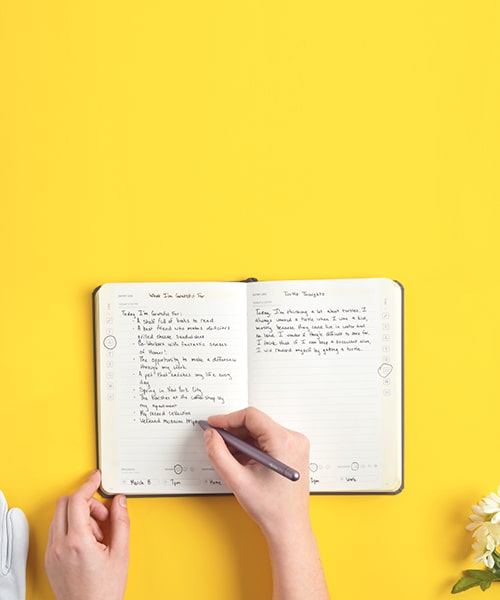 What I'm Grateful For
Today I'm Grateful For:
- A shelf full of books to read
- A best friend who makes delicious
grilled cheese sandwiches
- Co-Workers with fantastic senses
of Humor!
- The opportunity to make a difference
through my work
- A pet that enriches my life every
day
- Spring in New York City
- The Baristas at the coffee shop by
my apartment
- My record collection
- Weekend Museum
March 8
7pm
Home
Turtle Thoughts
Today, I'm thinking a lot about turtles. I
always wanted a turtle when I was a kid,
mostly because they can live in water and
on land. I wonder if they're difficult to care for.
I think that if I can have a excellent week,
I will reward myself by getting a turtle.
3pm
Work